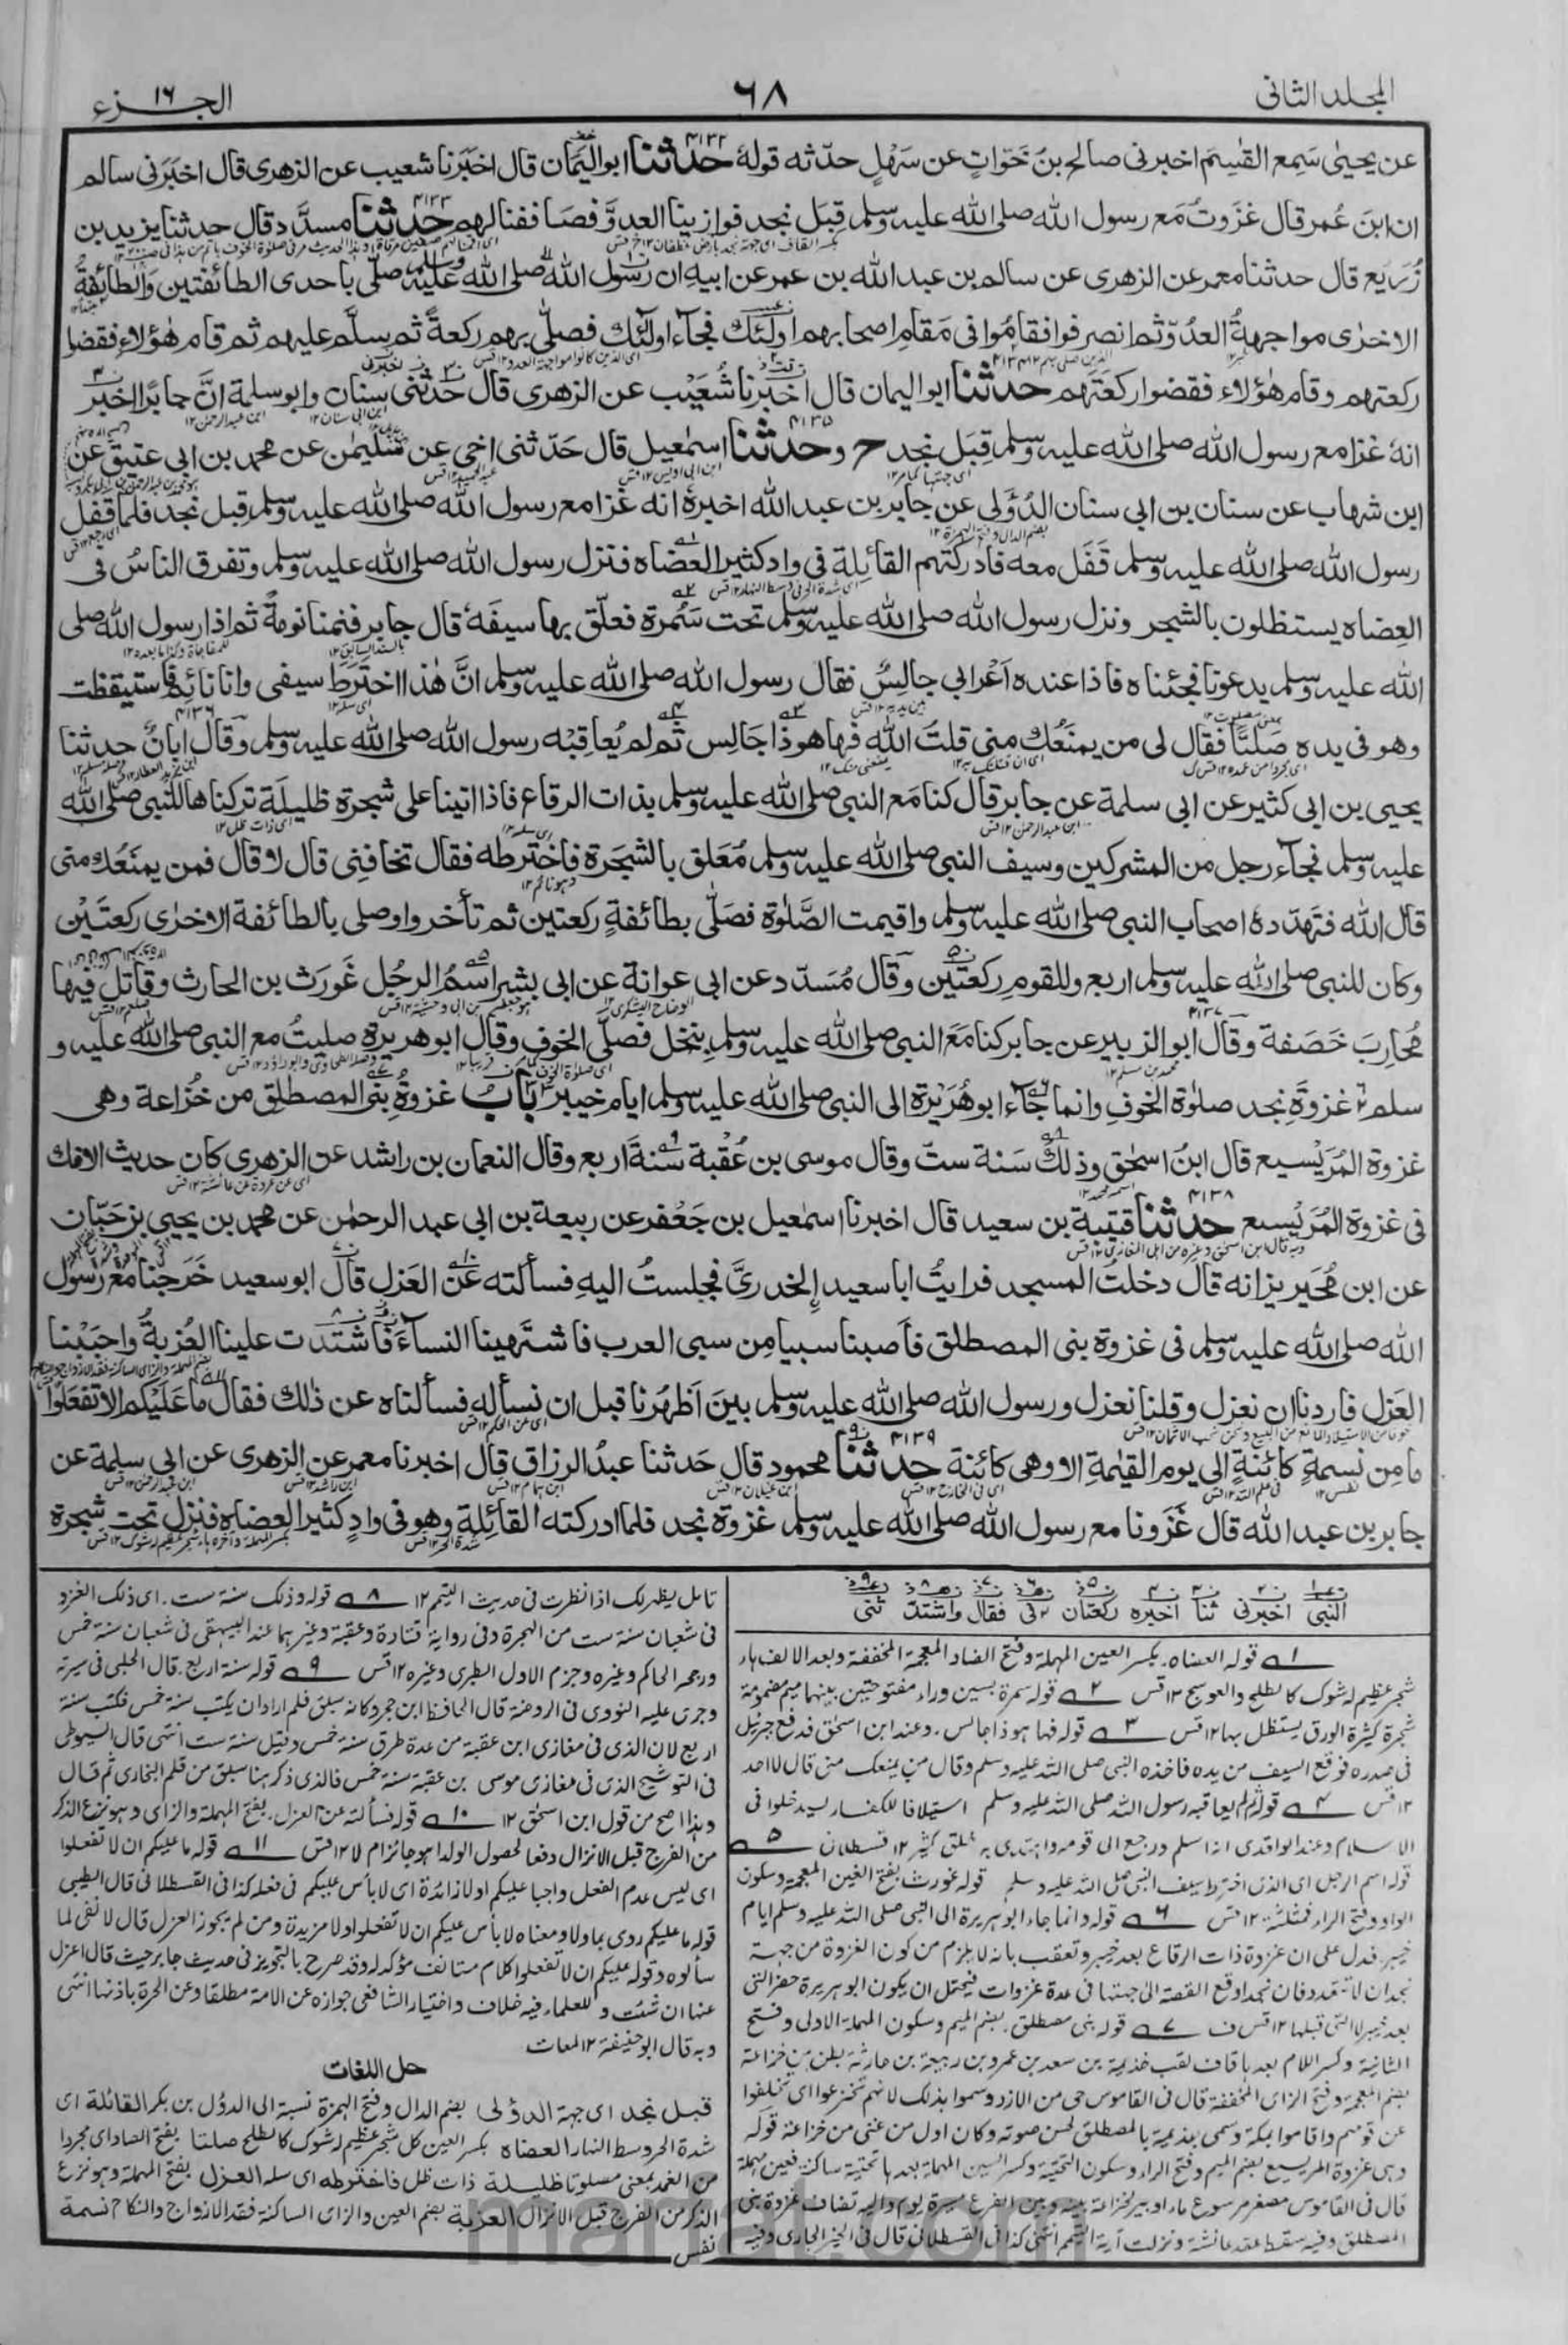 المجلد الثانی
٦٨
الجزء ١٦
عن یحییٰ سَمِع القٰسِمَ اخبرنی صالح بنُ خَوّاتٍ عن سَهْلٍ حدّثه قولهٗ حدثنا ابوالیَمان قال اخبَرَنا شعیب عن الزهری قال اخبَرَنی سالم
ان ابنَ عُمر قال غزَوتُ مَع رسول الله صلی الله علیه وسلم قِبَل نجد فوازینا العدوَّ فصَاففنا لهم حدثنا مسدَّد قال حدثنا یزید بن
زُرَیع قال حدثنا معمر عن الزهری عن سالم بن عبد الله بن عمر عن ابیه ان رسول الله صلی الله علیه وسلم صلّی باحدی الطائفتین والطائفةُ
الاخرٰی مواجهةُ العدُوّ ثم انصرفوا فقامُوا فی مَقامِ اصحابهم اولٰئک فجآء اولٰئک فصلّی بهم رکعةً ثم سلَّم علیهم ثم قام هٰؤلاء فقضوا
رکعتهم وقام هٰؤلاء فقضوا رکعتَهم حدثنا ابو الیمان قال اخبرنا شُعَیْب عن الزهری قال حدثنی سِنان وابو سلمة انَّ جابرًا اخبر
انهٗ غزا مع رسول الله صلی الله علیه وسلم قِبَل نجد ح وحدثنا اسمٰعیل قال حَدّثنی اخی عن سُلیمٰن عن محمد بن ابی عتیق عن
ابن شهاب عن سنان بن ابی سنان الدُؤَلی عن جابر بن عبد الله اخبرهٗ انه غزا مع رسول الله صلی الله علیه وسلم قِبل نجد فلما قَفَل
رسول الله صلی الله علیه وسلم قَفَل معه فادرکتهم القائلة فی واد کثیر العضاه فنزل رسول الله صلی الله علیه وسلم وتفرق الناسُ فی
العِضاه یستظلون بالشجر ونزل رسول الله صلی الله علیه وسلم تحت سَمُرة فعلّق بها سیفَهٗ قال جابر فنمنا نومةً ثم اذا رسول الله صلی
الله علیه وسلم یدعونا فجئناه فاذا عنده اَعْرابی جالِسٌ فقال رسول الله صلی الله علیه وسلم انَّ هٰذا اخترَط سیفی وانا نائم فاستیقظت
وهو فی یده صَلتًا فقال لی من یمنَعُک منی قلتُ الله فها هو ذا جَالِس ثم لم یُعاقِبْه رسول الله صلی الله علیه وسلم وقال ابانُ حدثنا
یحیی بن ابی کثیر عن ابی سلمة عن جابر قال کنا مَع النبی صلی الله علیه وسلم بذات الرقاع فاذا اتینا علی شجرة ظلیلة ترکناها للنبی صلی الله
علیه وسلم فجآء رجل من المشرکین وسیف النبی صلی الله علیه وسلم مُعَلق بالشجرة فاخترطه فقال تخافنی قال لا قال فمن یمنَعُک منی
قال الله فتَهدّدهٗ اصحاب النبی صلی الله علیه وسلم واقیمت الصَّلوٰة فصَلّی بطائفةٍ رکعتین ثم تأخروا وصلی بالطائفة الاخرٰی رکعتَیْن
وکان للنبی صلی الله علیه وسلم اربع وللقومِ رکعتَین وقال مُسَدّد عن ابی عوانة عن ابی بشر اسمُ الرجُل غَورَث بن الحارث وقاتَل فیها
مُحارِبَ خَصَفة وقال ابو الزبیر عن جابر کنا مَعَ النبی صلی الله علیه وسلم بنخل فصلّی الخوف وقال ابو هریرة صلیتُ مع النبی صلی الله علیه و
سلم غزوةَ نجد صلوٰة الخوفِ وانما جآء ابو هُرَیْرة الی النبی صلی الله علیه وسلم ایام خیبر بَابُ غزوةُ بنی المصطلق من خُزاعة وهی
غزوة المُرَیْسیع قال ابنُ اسحٰق وذلک سَنة ستّ وقال موسی بن عُقْبة سَنةَ اربع وقال النعمان بن راشد عن الزهری کان حدیث الافک
فی غزوة المُرَیْسیع حدثنا قتیبة بن سعید قال اخبرنا اسمٰعیل بن جَعْفر عن ربیعة بن ابی عبد الرحمٰن عن محمد بن یحیی بن حَبّان
عن ابن مُحَیریز انه قال دخلتُ المسجد فرایتُ ابا سعید الخدریَّ فجلستُ الیهِ فسألته عن العَزل قال ابو سعید خَرَجنا مع رسول
الله صلی الله علیه وسلم فی غزوة بنی المصطلق فاَصبنا سبیا مِن سبی العرب فاشتَهینا النسآءَ فاشتدّت علینا العُزبةُ واحبَبْنا
العَزل فاردنا ان نعزل وقلنا نعزل ورسول الله صلی الله علیه وسلم بینَ اَظهُرنا قبل ان نسأله فسألناه عن ذٰلک فقال ما عَلَیکم الا تفعَلوا
ما مِن نسمةٍ کائنةٍ الی یوم القیٰمةِ الا وهی کائنة حدثنا محمود قال حَدثنا عبدُ الرزاق قال اخبرنا معمر عن الزهری عن ابی سلمة عن
جابر بن عبد الله قال غَزَونا مع رسول الله صلی الله علیه وسلم غزوة نجد فلما ادرکته القائلة وهو فی وادٍ کثیر العِضاه فنزل تحت شجرة
النبی اخبرنی ثنا اخبره رکعتان فی فقال واشتد ثنی
١ قوله العضاه. بکسر العین المهملة وفتح الضاد المعجمة المخففة وبعد الالف هاء
شجر عظیم له شوک کالطلح والعوسج ١٢ قس ٢ قوله سمرة بسین وراء مفتوحتین بینهما میم مضمومة
شجرة کثیرة الورق یستظل بها ١٢ قس ٣ قوله فها هو ذا جالس. وعند ابن اسحٰق فدفع جبرئیل
فی صدره فوقع السیف من یده فاخذه النبی صلی الله علیه وسلم وقال من یمنعک منی قال لا احد
١٢ قس ٤ قوله ثم لم یعاقبه رسول الله صلی الله علیه وسلم استیلافا للکفار لیدخلوا فی
الاسلام وعند الواقدی انه اسلم ورجع الی قومه واهتدی به خلق کثیر ١٢ قسطلانی ٥
قوله اسم الرجل ای الذی اخترط سیف النبی صلی الله علیه وسلم قوله غورث بفتح الغین المعجمة وسکون
الواو وفتح الراء فمثلثة ١٢ قس ٦ قوله وانما جاء ابو هریرة الی النبی صلی الله علیه وسلم ایام
خیبر. فدل علی ان غزوة ذات الرقاع بعد خیبر وتعقب بانه لا یلزم من کون الغزوة من جهة
نجد ان لا تتعدد فان نجدا وقع القصد الی جهتها فی عدة غزوات فیحتمل ان یکون ابو هریرة حضر التی
بعد خیبر لا التی قبلها ١٢ قس ف ٧ قوله بنی مصطلق. بضم المیم وسکون المهملة الاولی وفتح
الثانیة وکسر اللام بعدها قاف لقب جذیمة بن سعد بن عمرو بن ربیعة بن حارثة بطن من خزاعة
بضم المعجمة وفتح الزای المخففة قال فی القاموس حی من الازد وسموا بذلک لانهم تخزعوا ای تخلفوا
عن قومهم واقاموا بمکة وسمی جذیمة بالمصطلق لحسن صوته وکان اول من غنی من خزاعة قوله
وهی غزوة المریسیع بضم المیم وفتح الراء وسکون التحتیة وکسر السین المهملة بعدها تحتیة ساکنة فعین مهملة
قال فی القاموس مصغر مرسوع ماء او بیر لخزاعة بینه وبین الفرع مسیرة یوم والیه تضاف غزوة بنی
المصطلق وفیه سقط عقد عائشة ونزلت آیة التیمم انتهی کذا فی القسطلانی قال فی الخیر الجاری وفیه
تامل یظهر لک اذا نظرت فی حدیث التیمم ١٢ ٨ قوله وذلک سنة ست. ای ذلک الغزو
فی شعبان سنة ست من الهجرة وفی روایة قتادة وعقبة وغیرهما عند البیهقی فی شعبان سنة خمس
ورجحه الحاکم وغیره وجزم الاول الطبری وغیره ١٢ قس ٩ قوله سنة اربع. قال الحلبی فی سیرته
وجری علیه النووی فی الروضة قال الحافظ ابن حجر وکانه سبق قلم اراد ان یکتب سنة خمس فکتب سنة
اربع لان الذی فی مغازی ابن عقبة من عدة طرق سنة خمس وقیل سنة ست انتهی قال السیوطی
فی التوشیح الذی فی مغازی موسی بن عقبة سنة خمس فالذی ذکر هنا سبق من قلم البخاری ثم قال
وهذا اصح من قول ابن اسحٰق ١٢ ١٠ قوله فسألته عن العزل. بفتح المهملة والزای وهو نزع الذکر
من الفرج قبل الانزال دفعا لحصول الولد اهو جائز ام لا ١٢ قس ١١ قوله ما علیکم ان لا تفعلوا
ای لیس عدم الفعل واجبا علیکم او لا زائدة ای لا بأس علیکم فی فعله کذا فی القسطلانی قال الطیبی
قوله ما علیکم روی بما ولا ومعناه لا بأس علیکم ان لا تفعلوا ولا مزیدة ومن لم یجوز العزل قال لا نفی لما
سألوه وقوله علیکم ان لا تفعلوا کلام مستانف مؤکد له وقد صرح بالتجویز فی حدیث جابر حیث قال اعزل
عنها ان شئت وللعلماء فیه خلاف واختیار الشافعی جوازه عن الامة مطلقا وعن الحرة باذنها انتهی
وبه قال ابو حنیفة ١٢ لمعات
حل اللغات
قبل نجد ای جهة الدؤلی بضم الدال وفتح الهمزة نسبة الی الدؤل بن بکر القائلة ای
شدة الحر وسط النهار العضاه بکسر العین کل شجر عظیم له شوک کالطلح صلتا بفتح الصاد ای مجردا
من الغمد بمعنی مصلوتا ظلیلة ذات ظل فاخترطه ای سله العزل بفتح المهملة وهو نزع
الذکر من الفرج قبل الانزال العزبة بضم العین والزای الساکنة فقد الازواج والنکاح نسمة
نفس